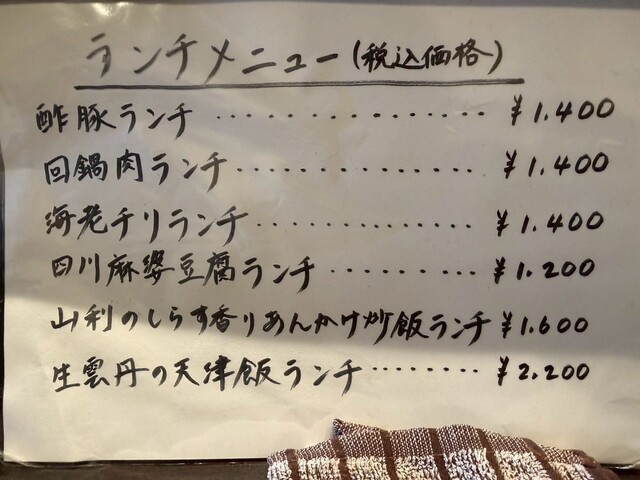 ランチメニュー(税込価格)
酢豚ランチ ················ ¥1.400
回鍋肉ランチ ··············· ¥1.400
海老チリランチ ·············· ¥1.400
四川麻婆豆腐ランチ ·········· ¥1.200
山利のしらす香りあんかけ炒飯ランチ ¥1.600
生雲丹の天津飯ランチ ········ ¥2.200